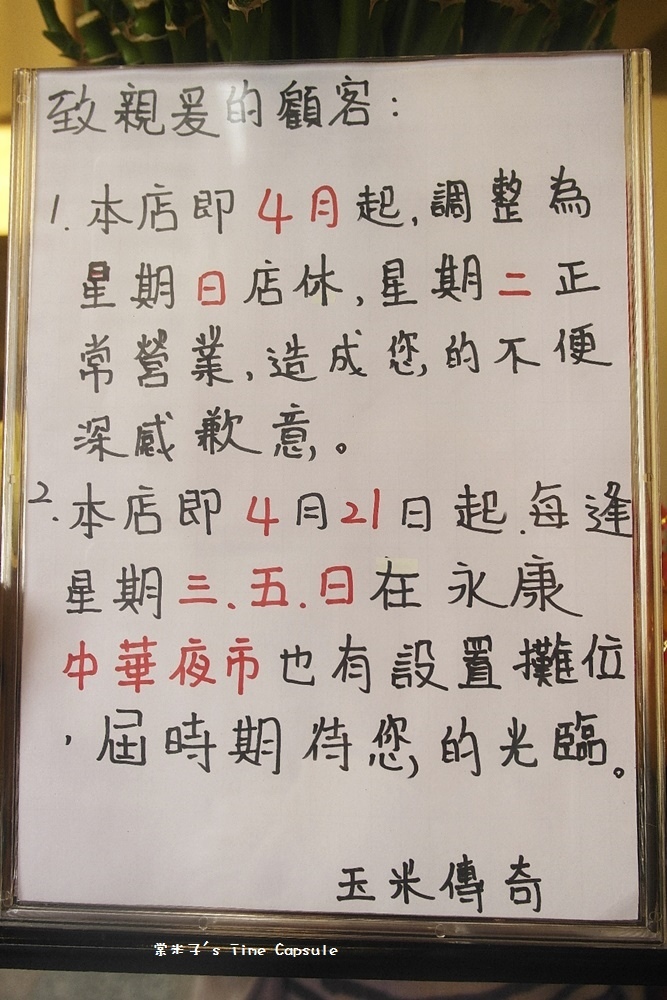 致親爰的顧客：
1.本店即4月起,調整為
星期日店休,星期二正
常營業,造成您的不便
深感歉意。
2.本店即4月21日起.每逢
星期三.五.日在永康
中華夜市也有設置攤位
，屆時期待您的光臨。
玉米傳奇
棠米子's Time Capsule